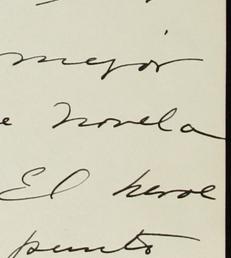 mejor
e novela
El heroe
punto